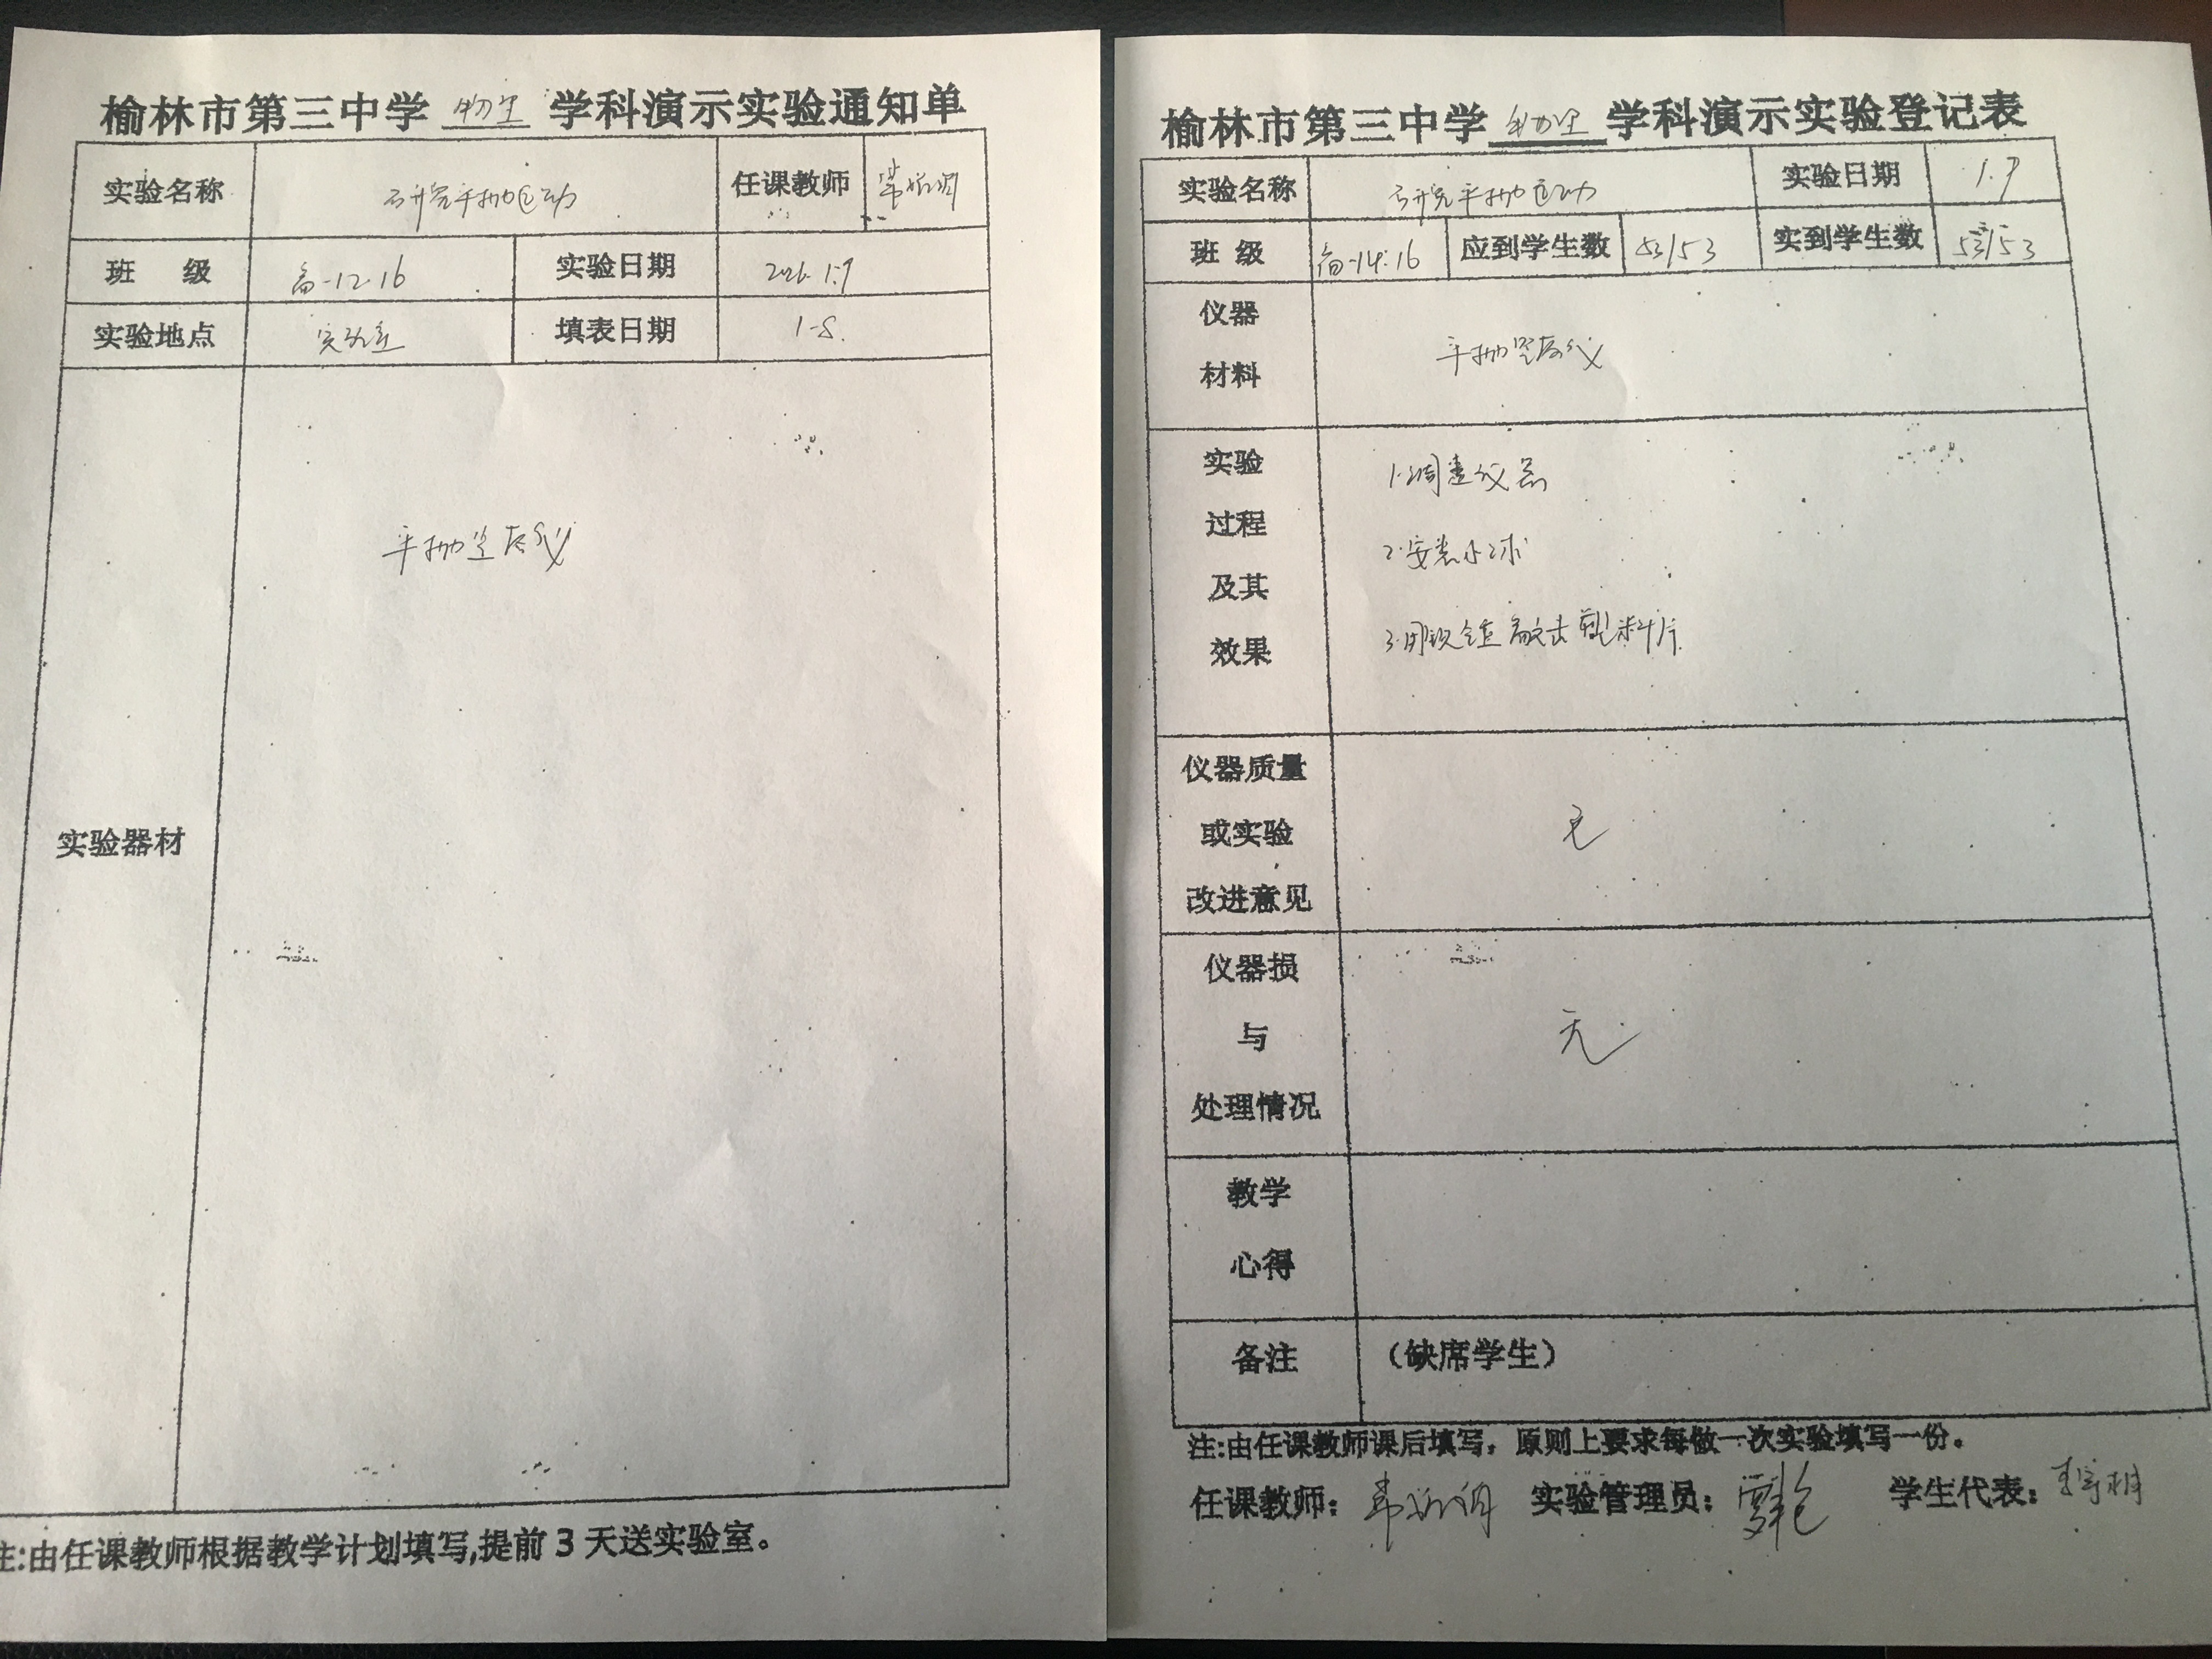 榆林市第三中学 物理 学科演示实验通知单
实验名称 研究平抛运动 任课教师
班 级 高一12.16 实验日期 1.9
实验地点 实验室 填表日期 1-5.
实验器材
平抛竖落仪
注:由任课教师根据教学计划填写,提前3天送实验室。
榆林市第三中学 物理 学科演示实验登记表
实验名称 研究平抛运动 实验日期 1.9
班 级 高一14:16 应到学生数 53/53 实到学生数 53/53
仪器
材料
平抛竖落仪
实验
过程
及其
效果
1.调整仪器
2.安装小球
3.用 锤敲击塑料片.
仪器质量
或实验
改进意见
无
仪器损
与
处理情况
无
教学
心得
备注 (缺席学生)
注:由任课教师课后填写，原则上要求每做一次实验填写一份。
任课教师: 实验管理员: 学生代表: